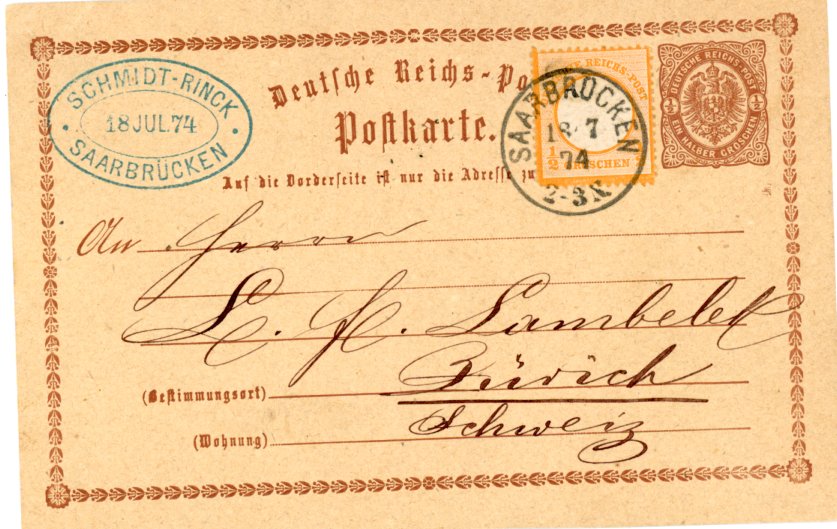 SCHMIDT-RINCK
18 JUL.74
SAARBRÜCKEN
Deutsche Reichs-Po
Postkarte.
Auf die Vorderseite ist nur die Adresse zu
REICHS-POST
1/2 GROSCHEN
SAARBRÜCKEN
18 7
74
2-3N
DEUTSCHE REICHS-POST
1/2 1/2
EIN HALBER GROSCHEN
An Herrn
L. H. Lambelet
(Bestimmungsort) Zürich
(Wohnung) Schweiz